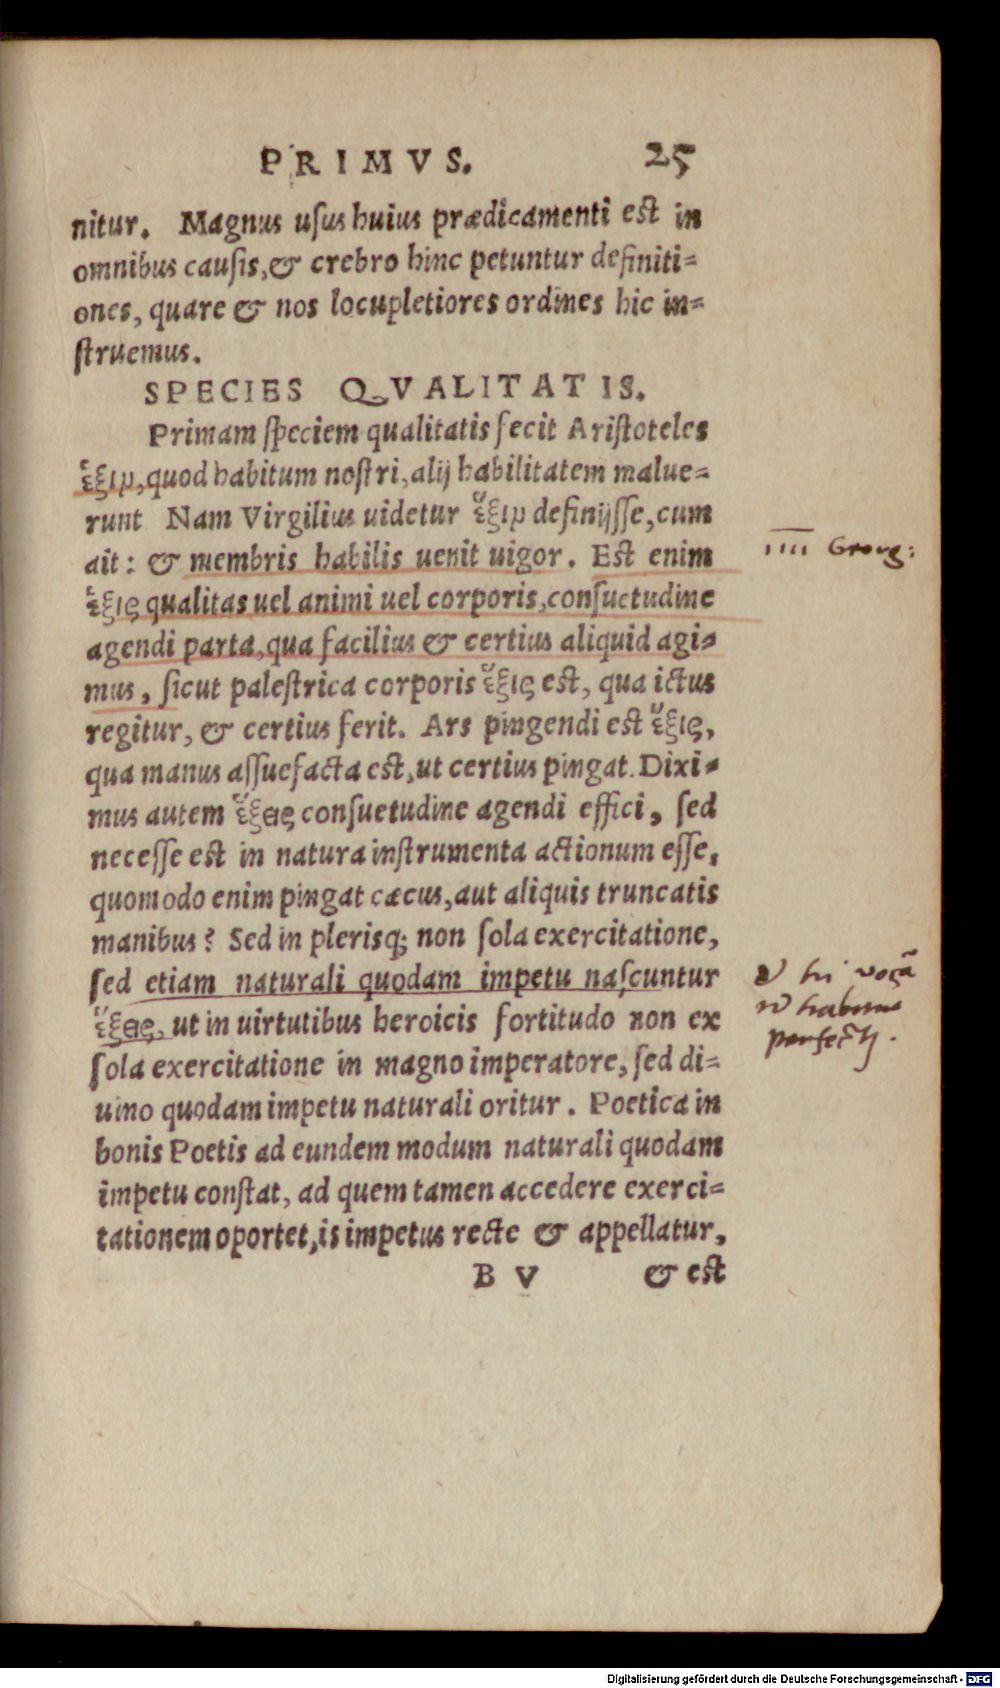 PRIMVS. 25
nitur. Magnus uſus huius prædicamenti est in
omnibus cauſis, & crebro hinc petuntur definiti=
ones, quare & nos locupletiores ordines hic in=
ſtruemus.
SPECIES QVALITATIS.
Primam ſpeciem qualitatis fecit Ariſtoteles
ἕξιμ, quod habitum noſtri, alij habilitatem malue=
runt Nam Virgilius uidetur ἕξιμ definijſſe, cum
ait: & membris habilis uenit uigor. Est enim
IIII Georg:
ἕξις qualitas uel animi uel corporis, conſuetudine
agendi parta, qua facilius & certius aliquid agi=
mus, ſicut paleſtrica corporis ἕξις est, qua ictus
regitur, & certius ferit. Ars pingendi est ἕξις,
qua manus aſſuefacta est, ut certius pingat. Dixi=
mus autem ἕξεις conſuetudine agendi effici, ſed
neceſſe est in natura inſtrumenta actionum eſſe,
quomodo enim pingat cæcus, aut aliquis truncatis
manibus? Sed in plerisq; non ſola exercitatione,
ſed etiam naturali quodam impetu naſcuntur
ἕξεις, ut in uirtutibus heroicis fortitudo non ex
ſola exercitatione in magno imperatore, ſed di=
uino quodam impetu naturali oritur. Poetica in
bonis Poetis ad eundem modum naturali quodam
impetu conſtat, ad quem tamen accedere exerci=
tationem oportet, is impetus recte & appellatur,
B V & est
Digitalisierung gefördert durch die Deutsche Forschungsgemeinschaft - DFG